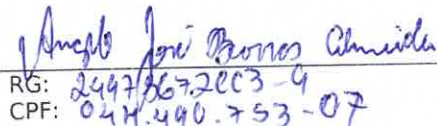 Angelo José Barros Almeida
RG: 24975672003-9
CPF: 044.490.753-07